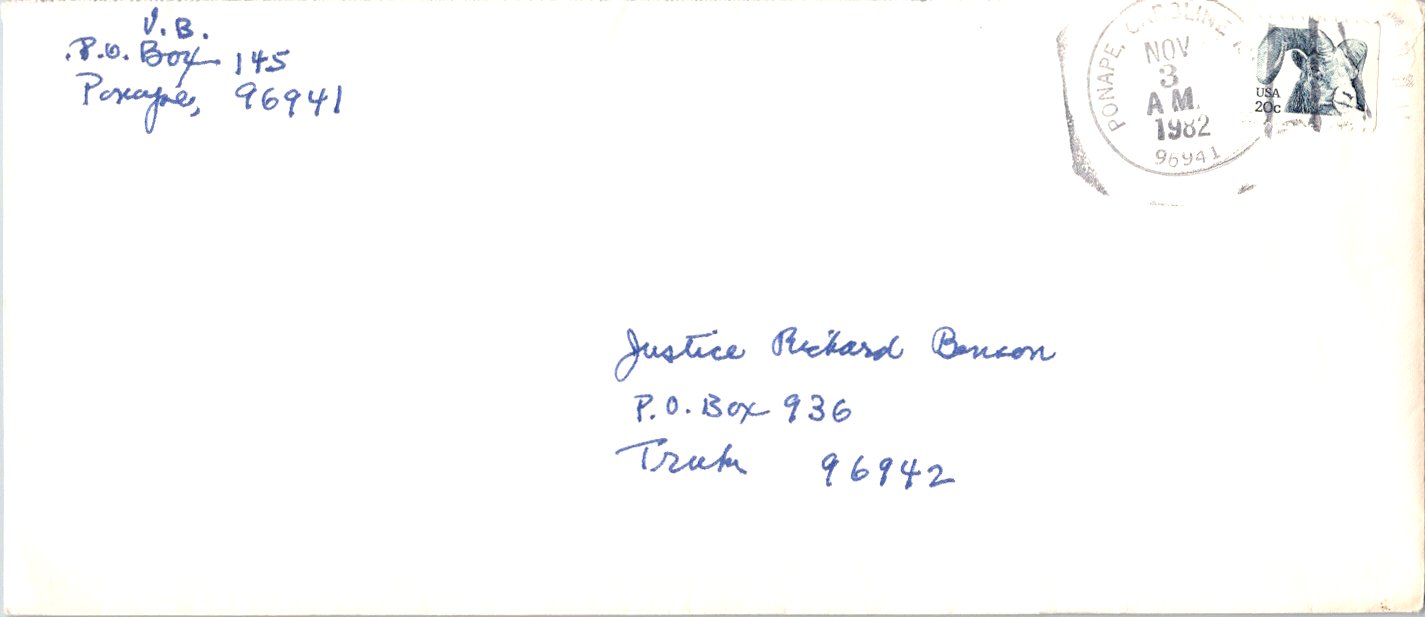 V.B.
P.O. Box 145
Ponape, 96941
PONAPE, CAROLINE
NOV
3
AM.
1982
96941
USA
20c
Justice Richard Benson
P.O. Box 936
Truk 96942